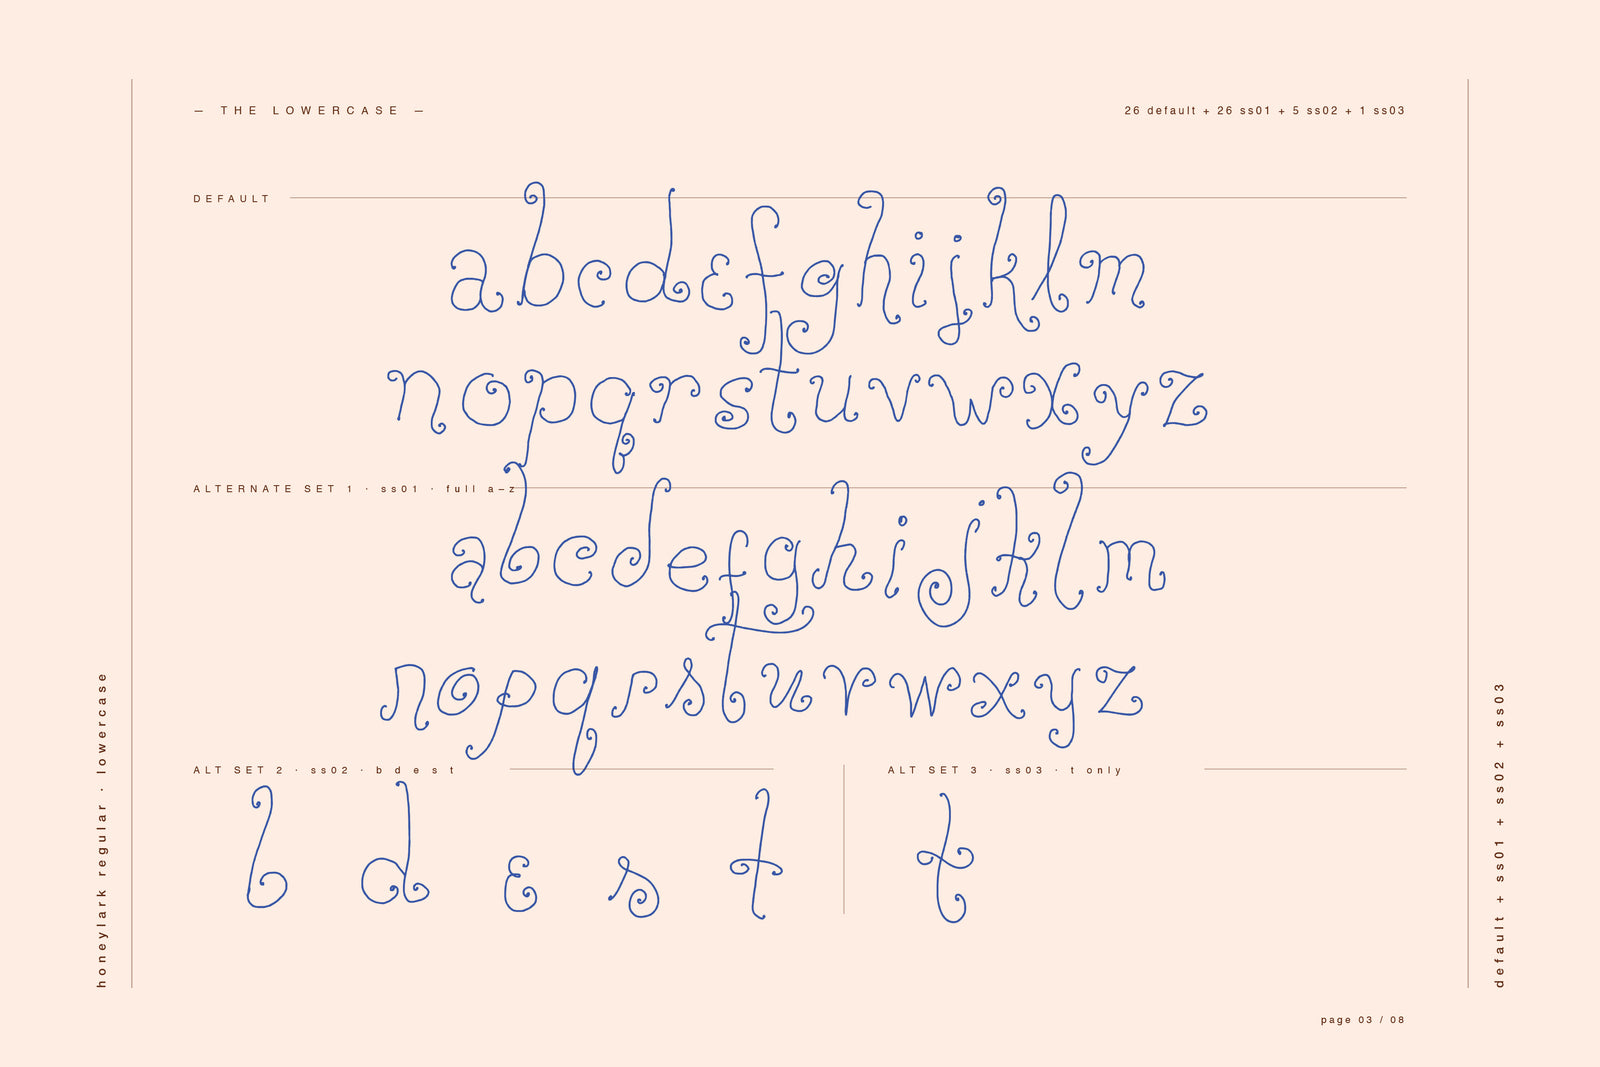 — THE LOWERCASE —
26 default + 26 ss01 + 5 ss02 + 1 ss03
DEFAULT
abcdefghijklm
nopqrstuvwxyz
ALTERNATE SET 1 · ss01 · full a–z
abcdefghijklm
nopqrstuvwxyz
ALT SET 2 · ss02 · b d e s t
b d e s t
ALT SET 3 · ss03 · t only
t
honeylark regular · lowercase
default + ss01 + ss02 + ss03
page 03 / 08